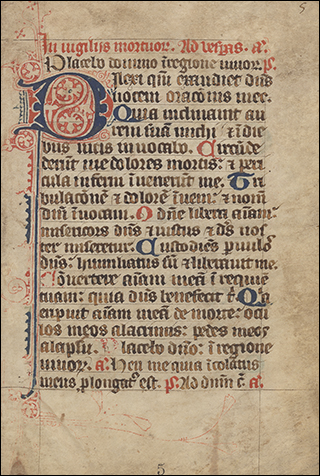 In vigilijs mortuor. Ad vesp̄as. a.
Placebo domino ī regione vivor. p̄s.
Dilexi qm̄ exaudiet dn̄s
vocem oracōnis mee.
Quia inclinavit au
rem suā michi ⁊ ī die
bus meis invocabo. Circūde
derūt me dolores mortis: ⁊ peri
cula inferni īvenerūt me. Tri
bulacōnē ⁊ dolorē īveni: ⁊ nom̄
dn̄i īvocavi. O dn̄e libera aīam:
misericors dn̄s ⁊ iustus ⁊ ds̄ nos
ter miseretur. Custodiēs p̄vulos
dn̄s: humiliatus sū ⁊ liberavit me.
Convertere aīam meā ī requiē
tuam: quia dn̄s benefecit t̄. Qa
eripuit aīam meā de morte: ocu
los meos a lacrimis: pedes meos
a lapsu. Placebo dn̄o: ī regione
vivor. a. Heu me quia īcolatus
meus p̄longatꝰ est. p̄s. Ad dn̄m c̄. a.
5